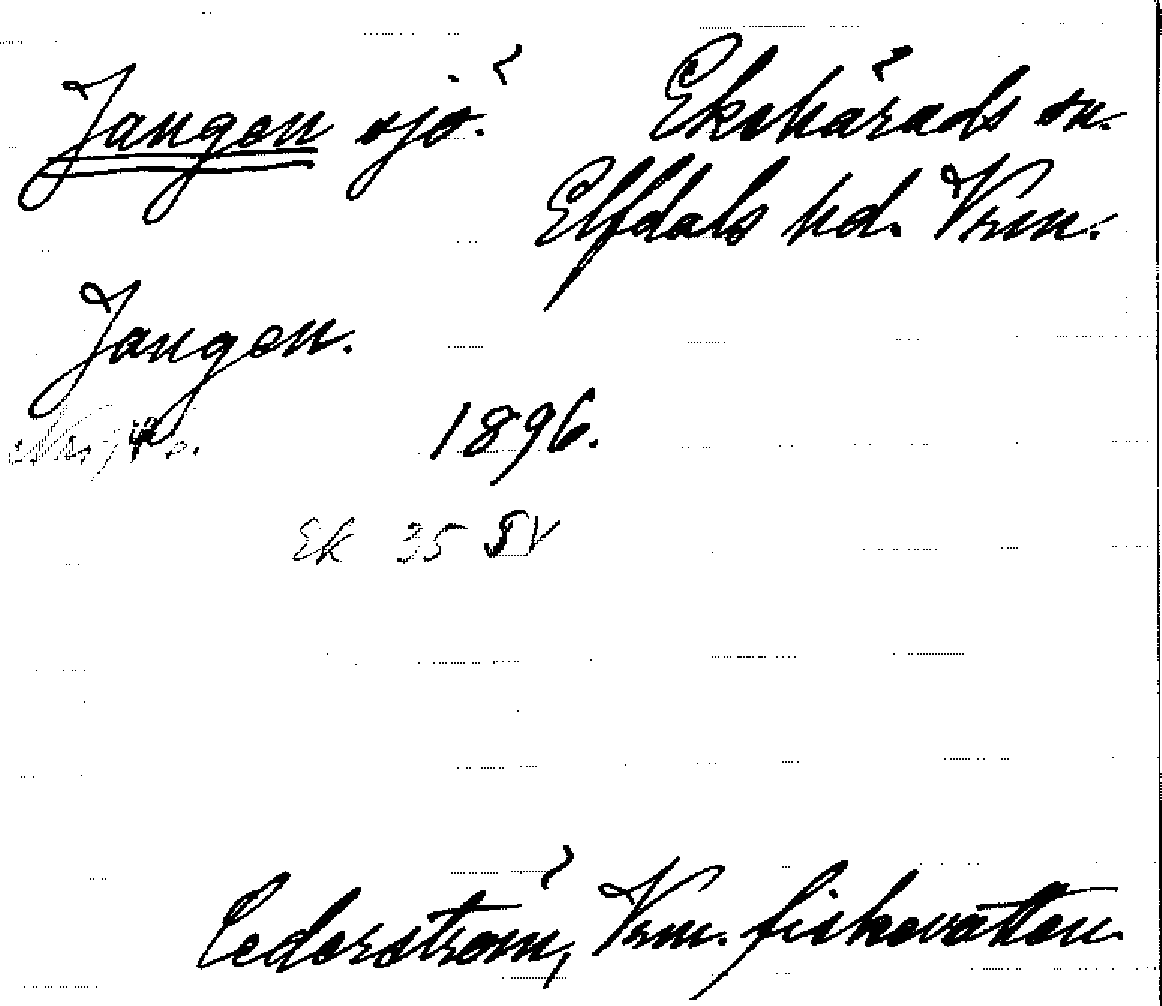 Jangen sjö. Ekshärads sn.
Elfdals hd. Vrm.
Jangen.
1896.
Ek 35 SV
Cederström, Vrm. fiskevatten.